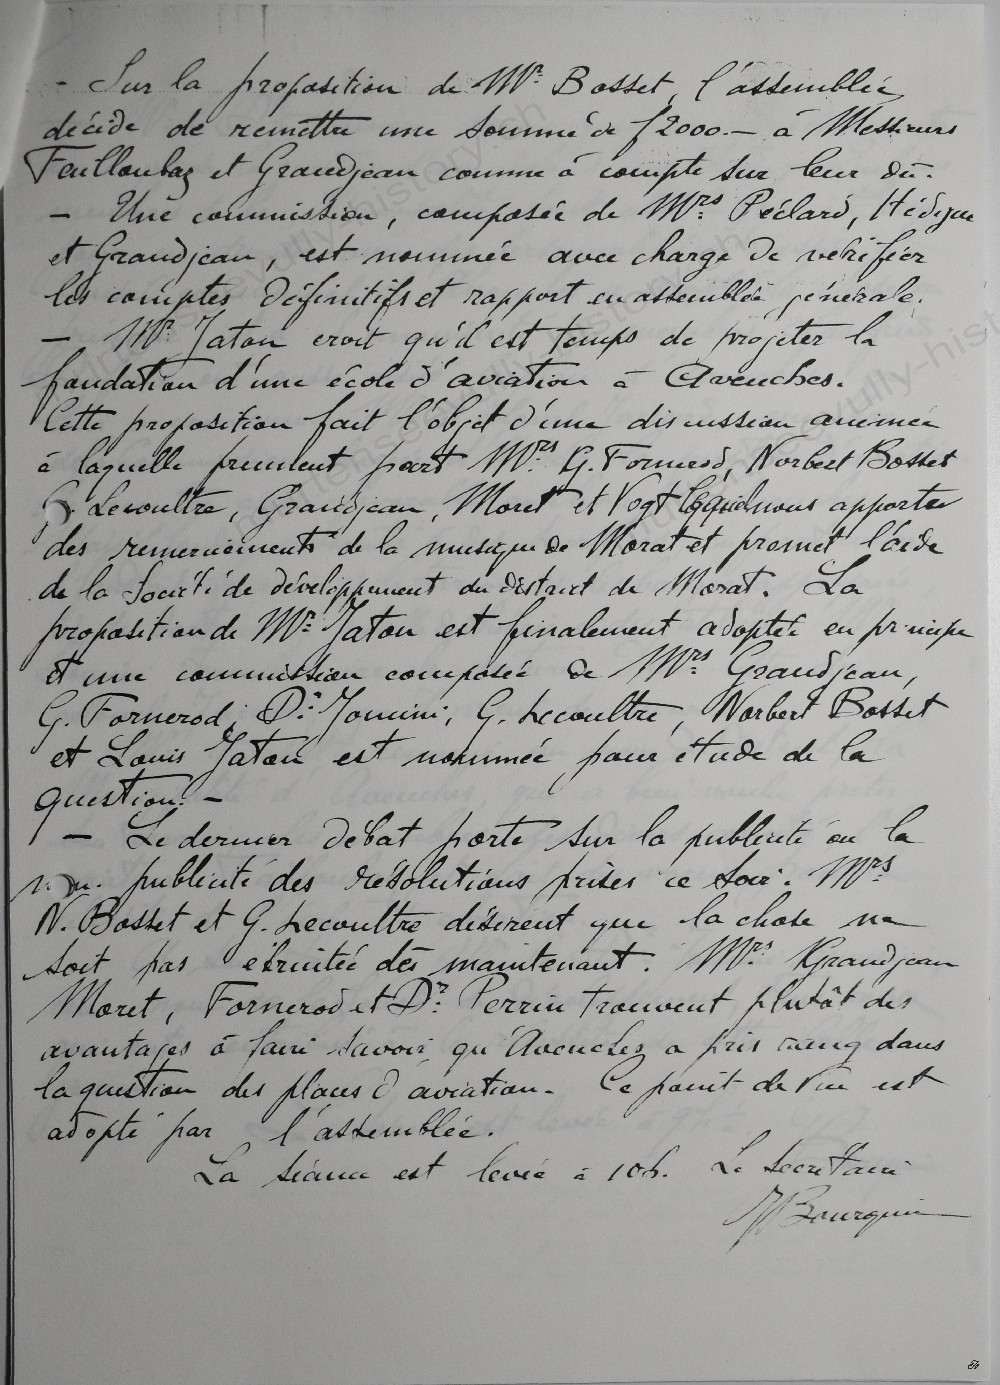 - Sur la proposition de Mr. Bosset, l'assemblée
décide de remettre une somme de f 2000.– à Messieurs
Failloubaz et Grandjean comme à compte sur leur dû.
– Une commission, composée de Mrs. Péclard,
et Grandjean, est nommée avec charge de vérifier
les comptes définitifs et rapport en assemblée générale.
– Mr. Jaton croit qu'il est temps de projeter la
fondation d'une école d'aviation à Avenches.
Cette proposition fait l'objet d'une discussion animée
à laquelle prennent part Mrs. G. Fornerod, Norbert Bosset
G. Lecoultre, Grandjean, Moret et Vogt qui nous apporte
des remerciements de la musique de Morat et promet l'aide
de la Société de développement du district de Morat. La
proposition de Mr. Jaton est finalement adoptée en principe
et une commission composée de Mrs. Grandjean,
G. Fornerod, Dr. Jomini, G. Lecoultre, Norbert Bosset
et Louis Jaton est nommée pour étude de la
question. –
– Le dernier débat porte sur la publicité ou la
non publicité des résolutions prises ce soir. Mrs.
N. Bosset et G. Lecoultre désirent que la chose ne
soit pas ébruitée dès maintenant. Mrs. Grandjean
Moret, Fornerod et Dr. Perrin trouvent plutôt des
avantages à faire savoir qu'Avenches a pris rang dans
la question des places d'aviation. Ce point de vue est
adopté par l'assemblée.
La séance est levée à 10 h. Le Secrétaire
Bourquin